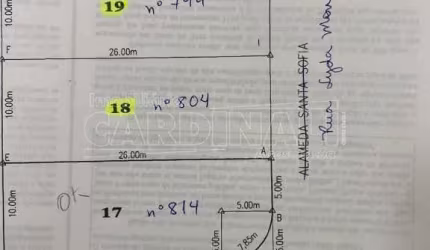 10.00m
19 nº 794
F 26.00m 1
10.00m
18 nº 804
CARDINALI
ALAMEDA SANTA SOFIA
Rua Lyda
E 26.00m A
5.00m
10.00m
17 nº 814 5.00m B
7.85m
5.00m
5.00m